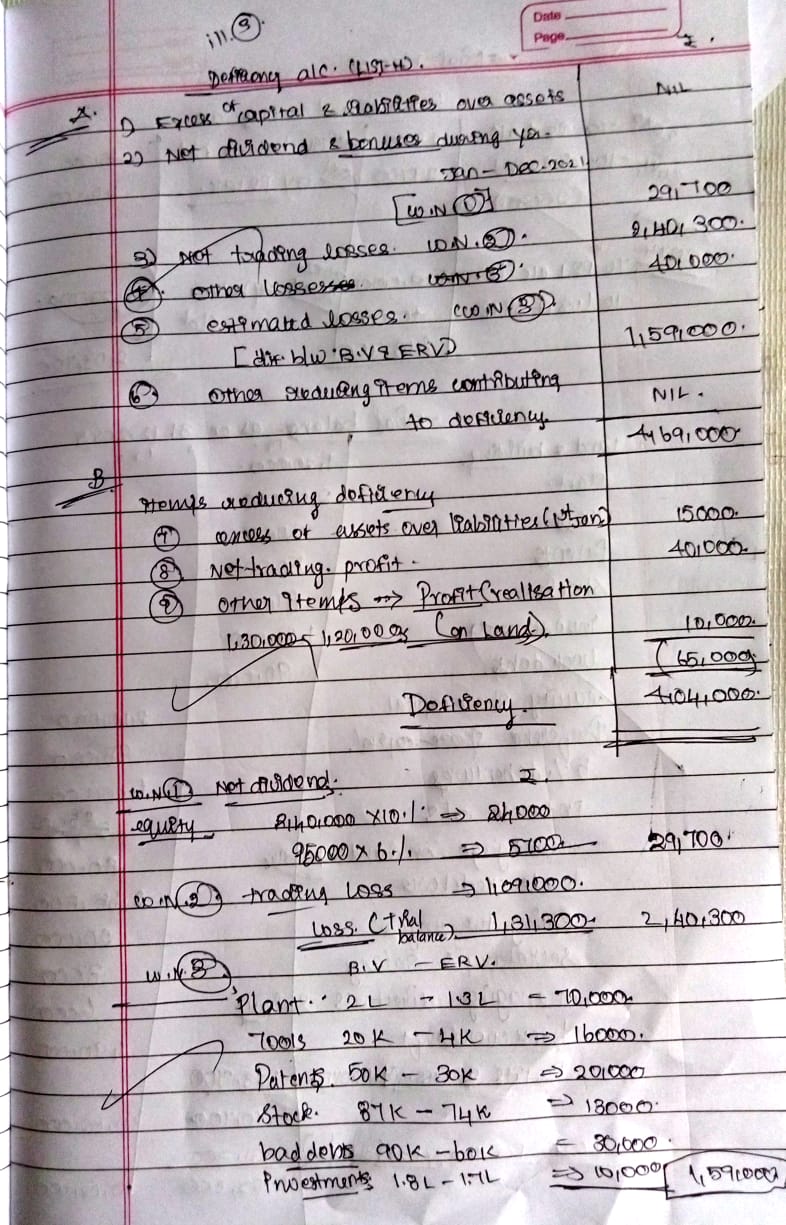 ill. ③
Date
Page
Deficiency a/c. (LIST-H).
₹.
A. 1) Excess of capital & liabilities over assets NIL
2) Net dividend & bonuses during yr.
Jan - Dec. 2021
[W.N ①] 29,700
3) Net trading losses. W.N. ②. 2,40,300.
④ other losses 40,000.
⑤ estimated losses. (W.N ③).
[dif. b/w B.V & ERV] 1,59,000.
⑥ other reducing items contributing
to deficiency NIL.
4,69,000
B. Items reducing deficiency
⑦ excess of assets over liabilities (1st Jan) 15000.
⑧ Net trading profit. 40,000.
⑨ other items → Profit (realisation
1,30,000 - 1,20,000) (on Land). 10,000.
(65,000)
Deficiency. 4,04,000.
W.N ① Net dividend: ₹.
equity 2,40,000 × 10% ⇒ 24000
95000 × 6% ⇒ 5700 29,700.
W.N. ② trading Loss ⇒ 1,09,000.
Loss. (Trial balance) 1,31,300 2,40,300
W.N. ③ B.V - ERV.
Plant. 2L - 1.3L = 70,000
Tools 20K - 4K ⇒ 16000.
Patents 50K - 30K ⇒ 20,000
Stock. 87K - 74K ⇒ 13000.
bad debts 90K - 60K = 30,000.
Investments 1.8L - 1.7L ⇒ 10,000 1,59,000